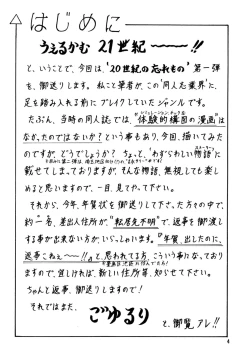 はじめに
うぇるかむ 21世紀 〜〜〜!!
と、いうことで、今回は、'20世紀の忘れもの' 第一弾
を、御送りします。 私こと筆者が、この'同人志業界'に、
足を踏み入れる前に ブレイクしていたジャンルです。
たぶん、当時の同人誌では、"体験的構図の漫画"は
なかったのではないか? という事もあり、今回、描いてみた
のですが、どうでしょうか? ちょっと、'わずらわしい物語'に
載せてしまっておりますが、そんな物語、無視しても楽し
めると思いますので、一目、見てやって下さい。
それから、今年、年賀状を御送りして下さった方々の中で、
約一名、差出人住所が、"転居先不明"で、返事を御渡し
する事が出来ない方が、いらっしゃいます。『年賀、出したのに、
返事こねぇ〜〜!!』と、思われてる方、こういう事になっており
ますので、宜しければ、新しい住所等、知らせて下さい。
ちゃんと返事、御送りしますので!
それではまた、
ごゆるり
と、御覧アレ!!
4